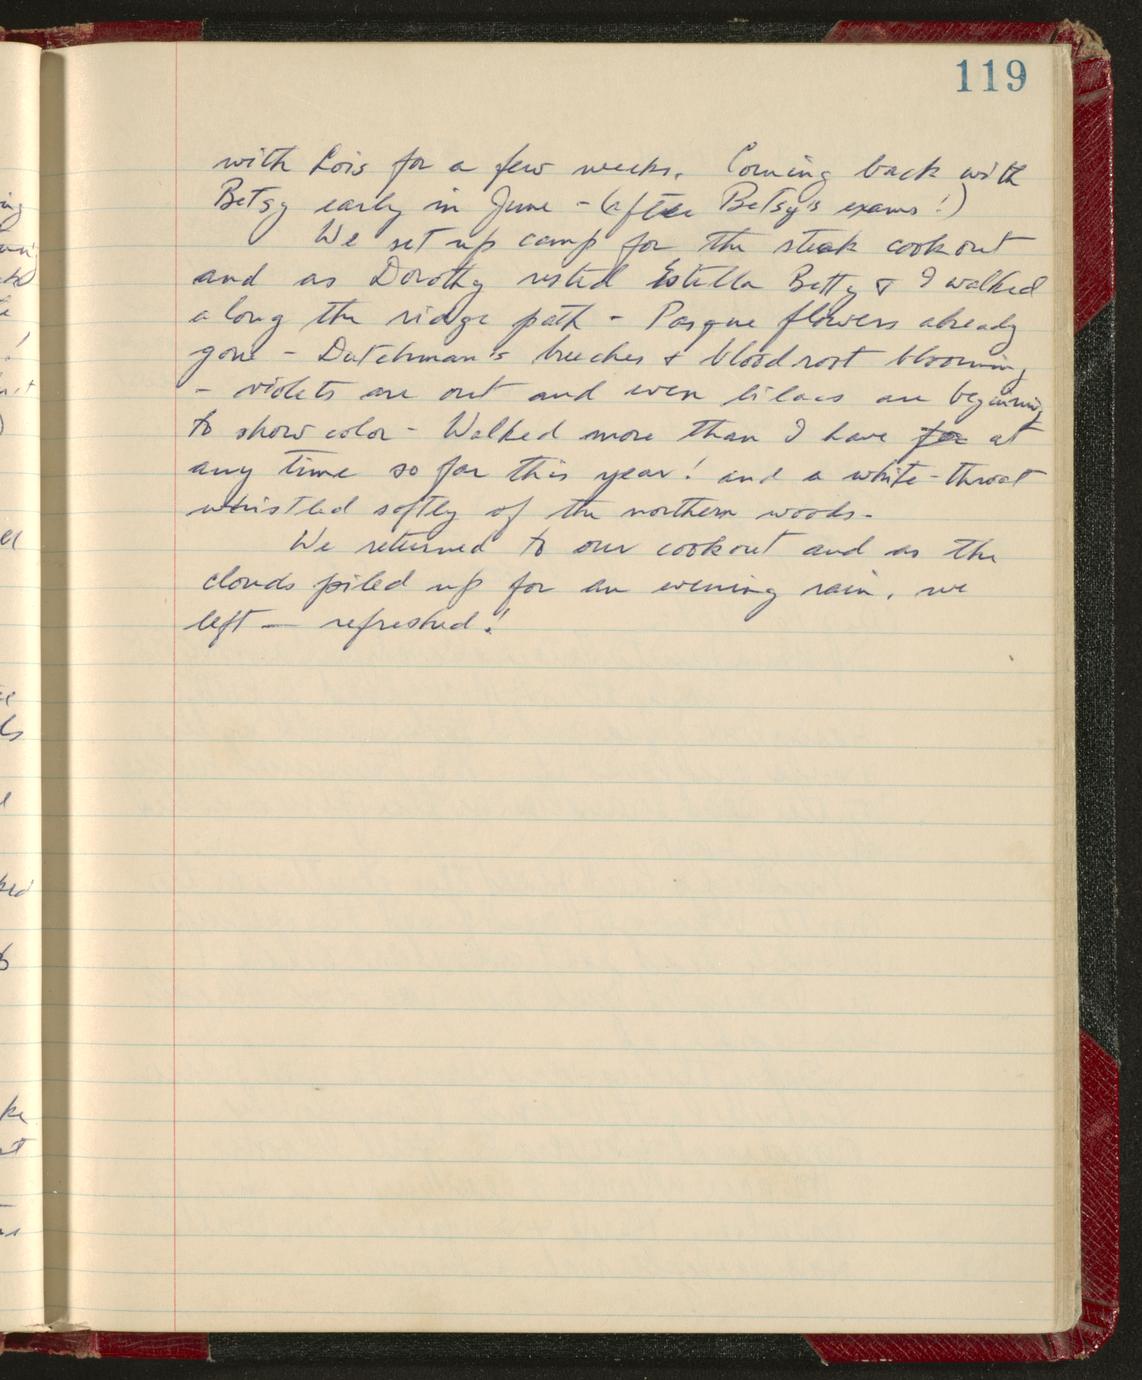 119
with Lois for a few weeks. Coming back with
Betsy early in June - (after Betsy's exams!)
We set up camp for the steak cookout
and as Dorothy rested Estella Betty & I walked
along the ridge path - Pasque flowers already
gone - Dutchman's breeches & bloodroot blooming
- violets are out and even lilacs are beginning
to show color - Walked more than I have for at
any time so far this year! and a white-throat
whistled softly of the northern woods.
We returned to our cookout and as the
clouds piled up for an evening rain, we
left — refreshed!